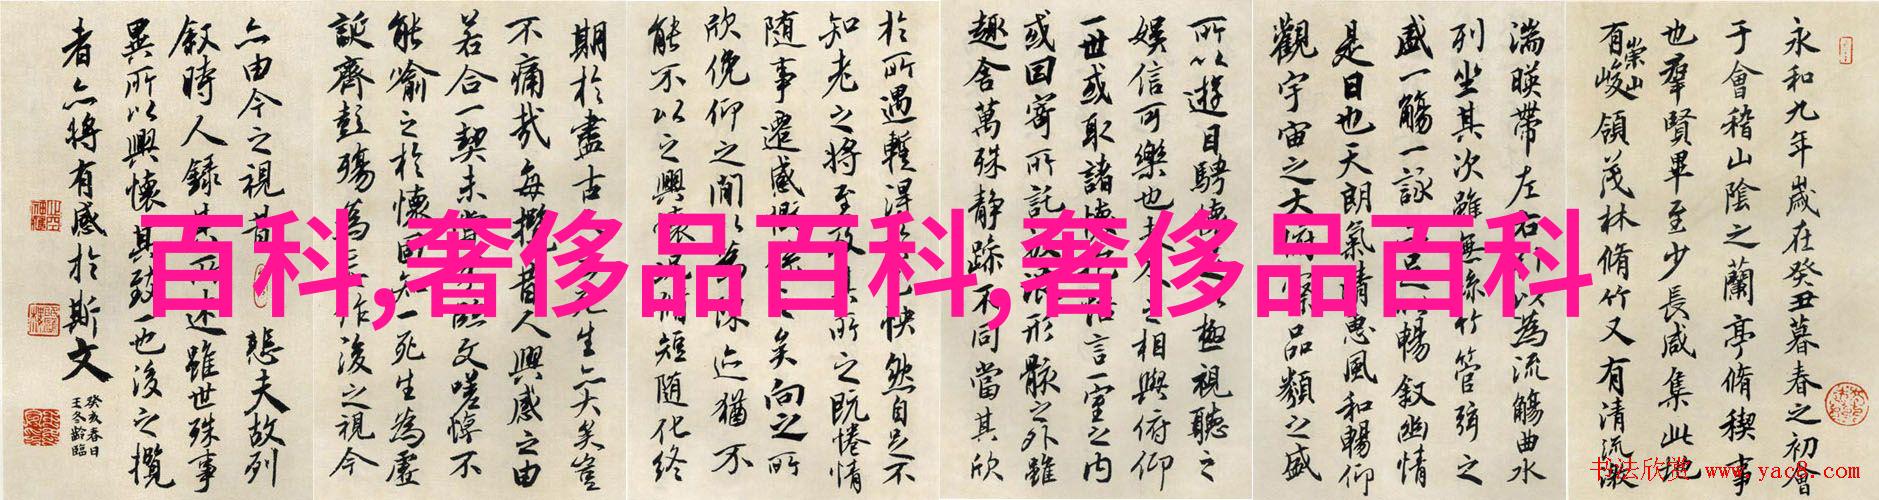 永和九年歲在癸丑暮春之初會
于會稽山陰之蘭亭脩稧事
也羣賢畢至少長咸集此地
有崇山峻領茂林脩竹又有清流激
湍暎帶左右引以為流觴曲水
列坐其次雖無絲竹管弦之
盛一觴一詠亦足以暢敘幽情
是日也天朗氣清惠風和暢仰
觀宇宙之大俯察品類之盛
所以遊目騁懷足以極視聽之
娛信可樂也夫人之相與俯仰
一世或取諸懷抱悟言一室之內
或因寄所託放浪形骸之外雖
趣舍萬殊靜躁不同當其欣
於所遇暫得於己快然自足不
知老之將至及其所之既惓情
隨事遷感慨係之矣向之所
欣俛仰之間以為陳迹猶不
能不以之興懷況脩短隨化終
期於盡古人云死生亦大矣豈
不痛哉每攬昔人興感之由
若合一契未嘗不臨文嗟悼不
能喻之於懷固知一死生為虛
誕齊彭殤為妄作後之視今
亦由今之視昔悲夫故列
敘時人錄其所述雖世殊事
異所以興懷其致一也後之攬
者亦將有感於斯文
癸亥春日
王冬齡臨
百科,奢侈品百科,奢侈品百科
书法欣赏 www.yac8.com